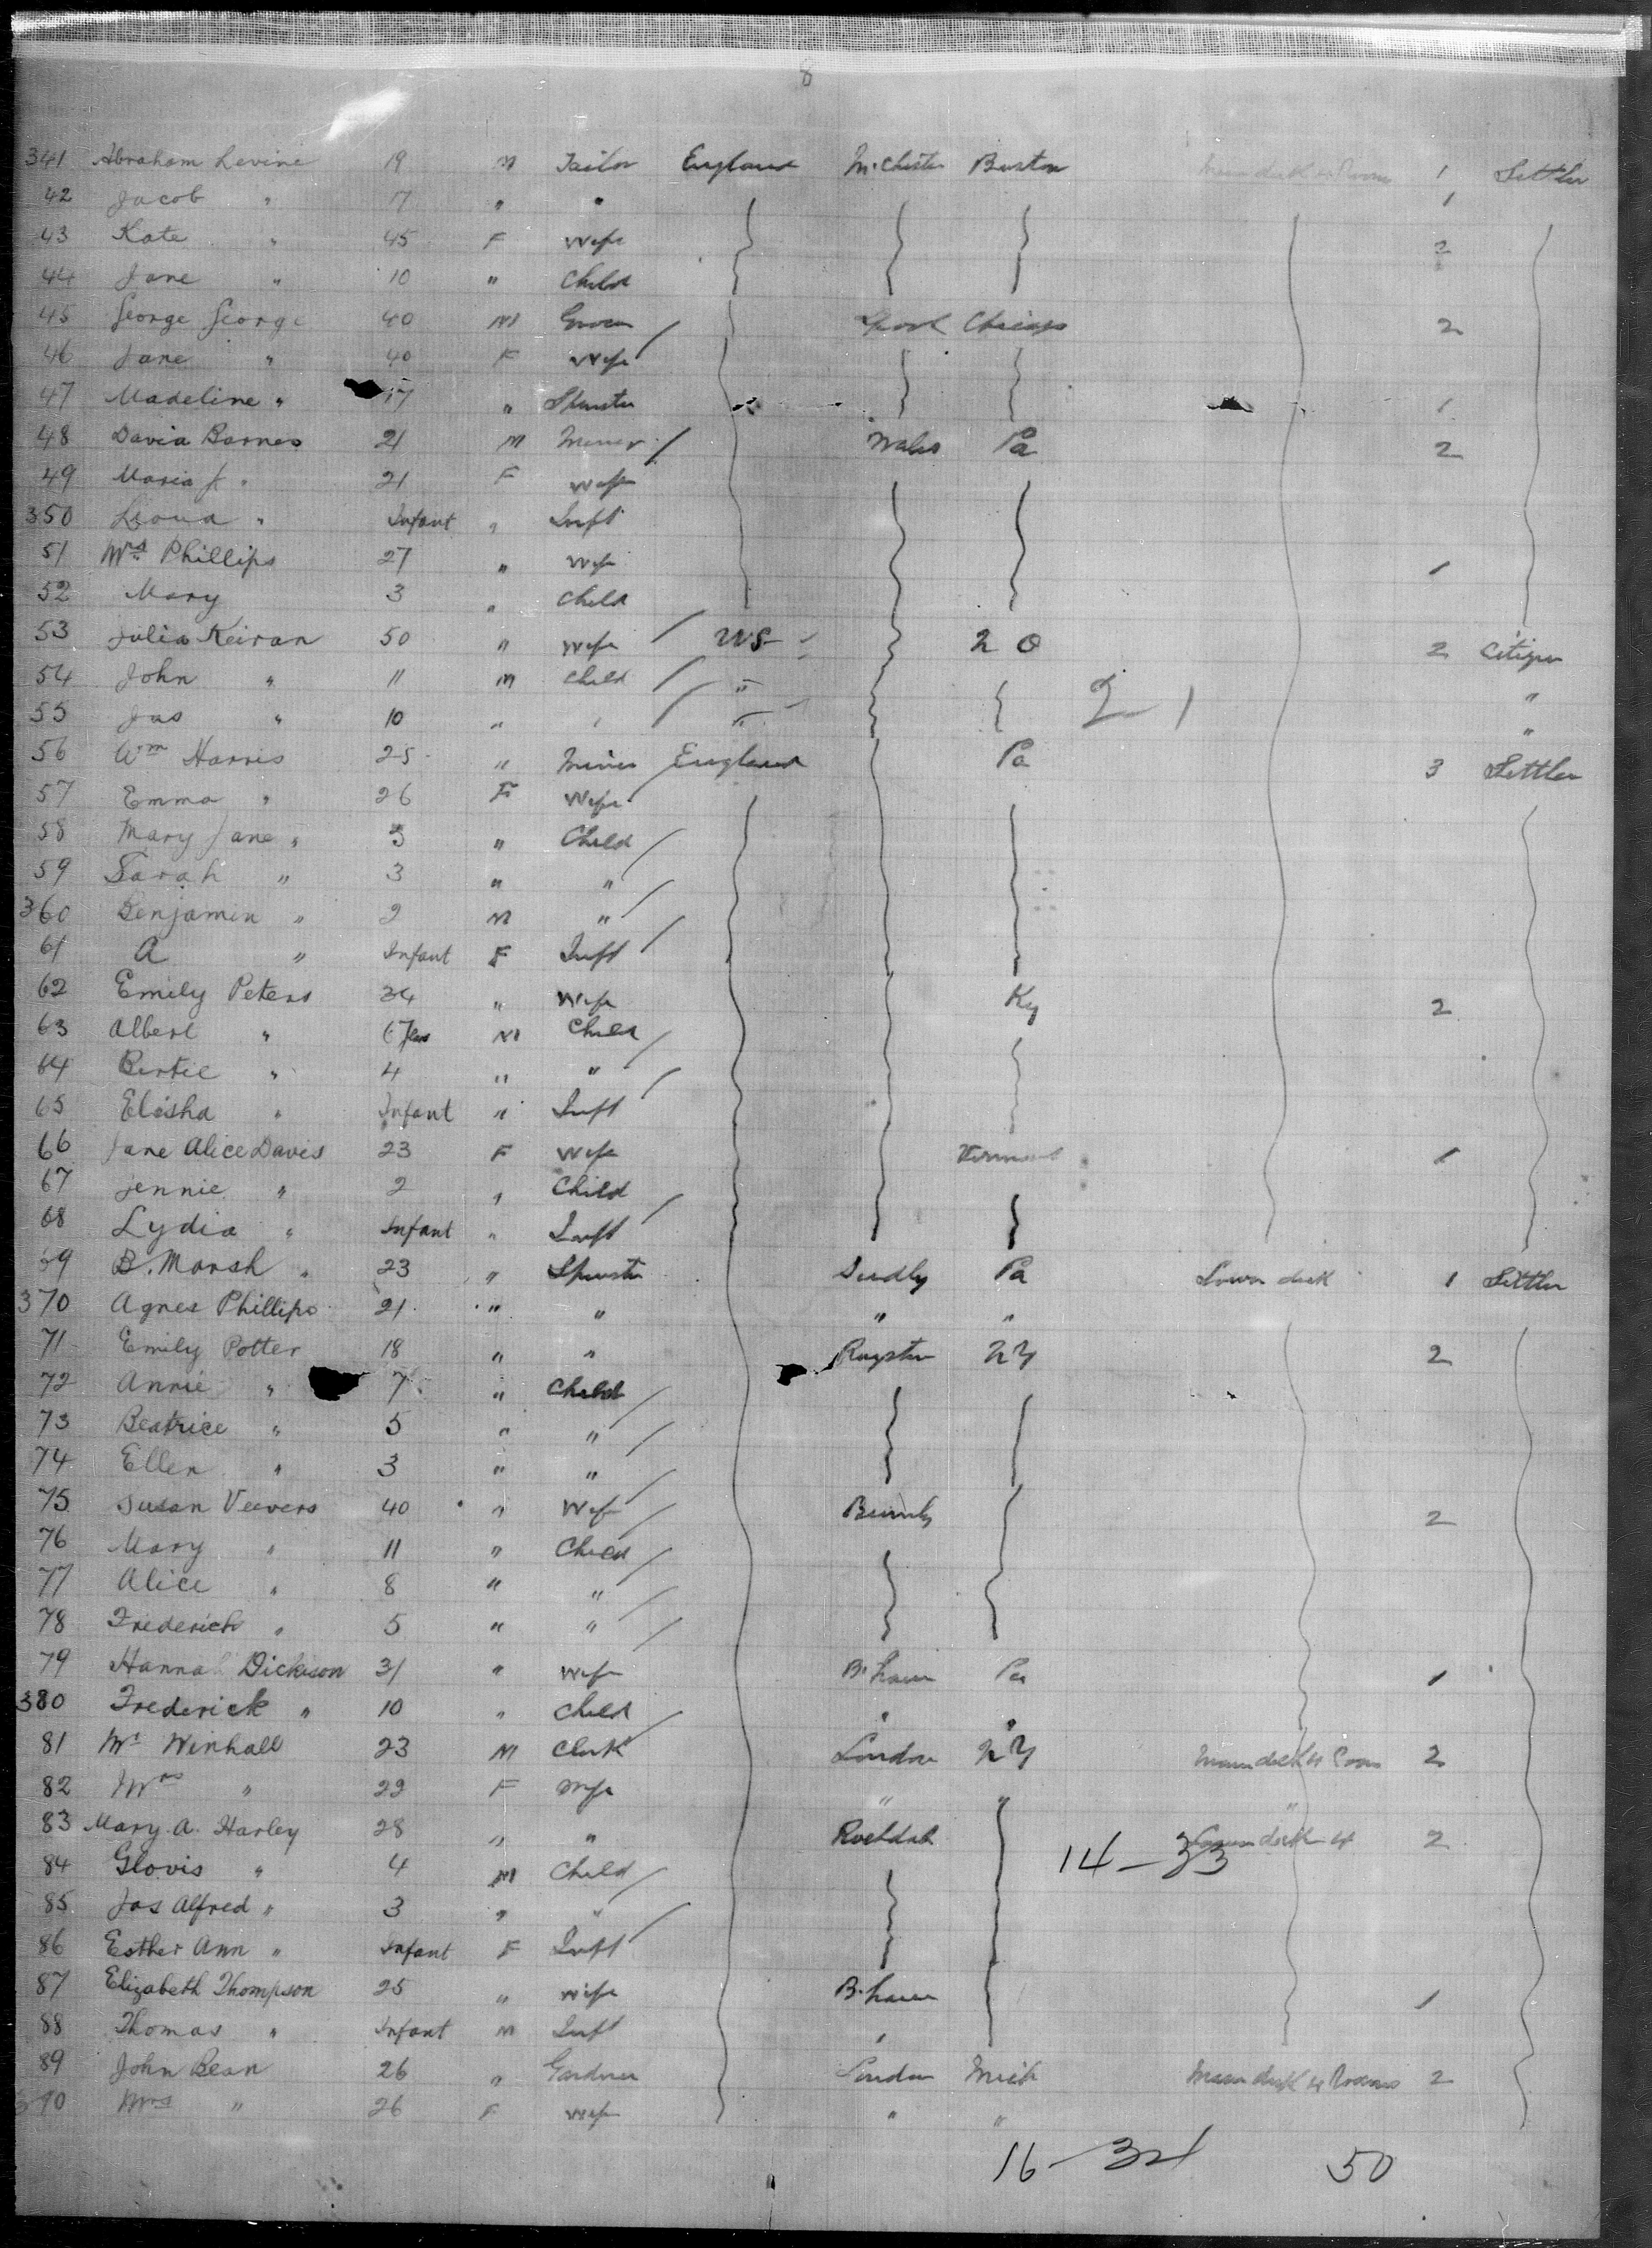 8
341 Abraham Levine 19 M Tailor England M.Chester Boston Main deck 4 Rooms 1 Settler
42 Jacob " 17 " " 1
43 Kate " 45 F Wife 2
44 Jane " 10 " Child
45 George George 40 M Grocer / L'pool Chicago 2
46 Jane " 40 F Wife
47 Madeline " 17 " Spinster 1
48 David Barnes 21 M Miner / Wales Pa 2
49 Maria J. " 21 F Wife
350 Leona " Infant " Inft
51 Mrs Phillips 27 " Wife 1
52 Mary 3 " Child
53 Julia Keiran 50 " Wife / US 2 Citizen
54 John " 11 M Child / " 2-1 "
55 Jas " 10 " ' / " "
56 Wm Harris 25 " Miner England Pa 3 Settler
57 Emma " 26 F Wife
58 Mary Jane " 5 " Child /
59 Sarah " 3 " " /
360 Benjamin " 2 M " /
61 A " Infant F Inft
62 Emily Peters 34 " Wife Ky 2
63 Albert " 6 M Child /
64 Bertie " 4 " " /
65 Elisha " Infant " Inft
66 Jane Alice Davis 23 F Wife Vermont 1
67 Jennie " 2 " Child /
68 Lydia " Infant " Inft
69 B. Marsh " 23 " Spinster Dudly Pa Lower deck 1 Settler
370 Agnes Phillips 21 " " " "
71 Emily Potter 18 " " Royston NY 2
72 Annie " 7 " Child /
73 Beatrice " 5 " " /
74 Ellen " 3 " " /
75 Susan Veevers 40 " Wife / Burnly 2
76 Mary " 11 " Child /
77 Alice " 8 " " /
78 Frederick " 5 " " /
79 Hannah Dickison 31 " Wife B.ham Pa 1
380 Frederick " 10 " Child / " "
81 Mr Winhall 23 M Clerk London NY Main deck 4 Rooms 2
82 Mrs " 22 F Wife " " "
83 Mary A. Harley 28 " " Rochdale Lower deck 4 2
14-33
84 Glovis " 4 M Child /
85 Jas Alfred " 3 " " /
86 Esther Ann " Infant F Inft
87 Elizabeth Thompson 25 " Wife B.ham 1
88 Thomas " Infant M Inft '
89 John Bean 26 " Gardner London Mich Main deck 4 Rooms 2
390 Mrs " 26 F Wife " "
16-34 50